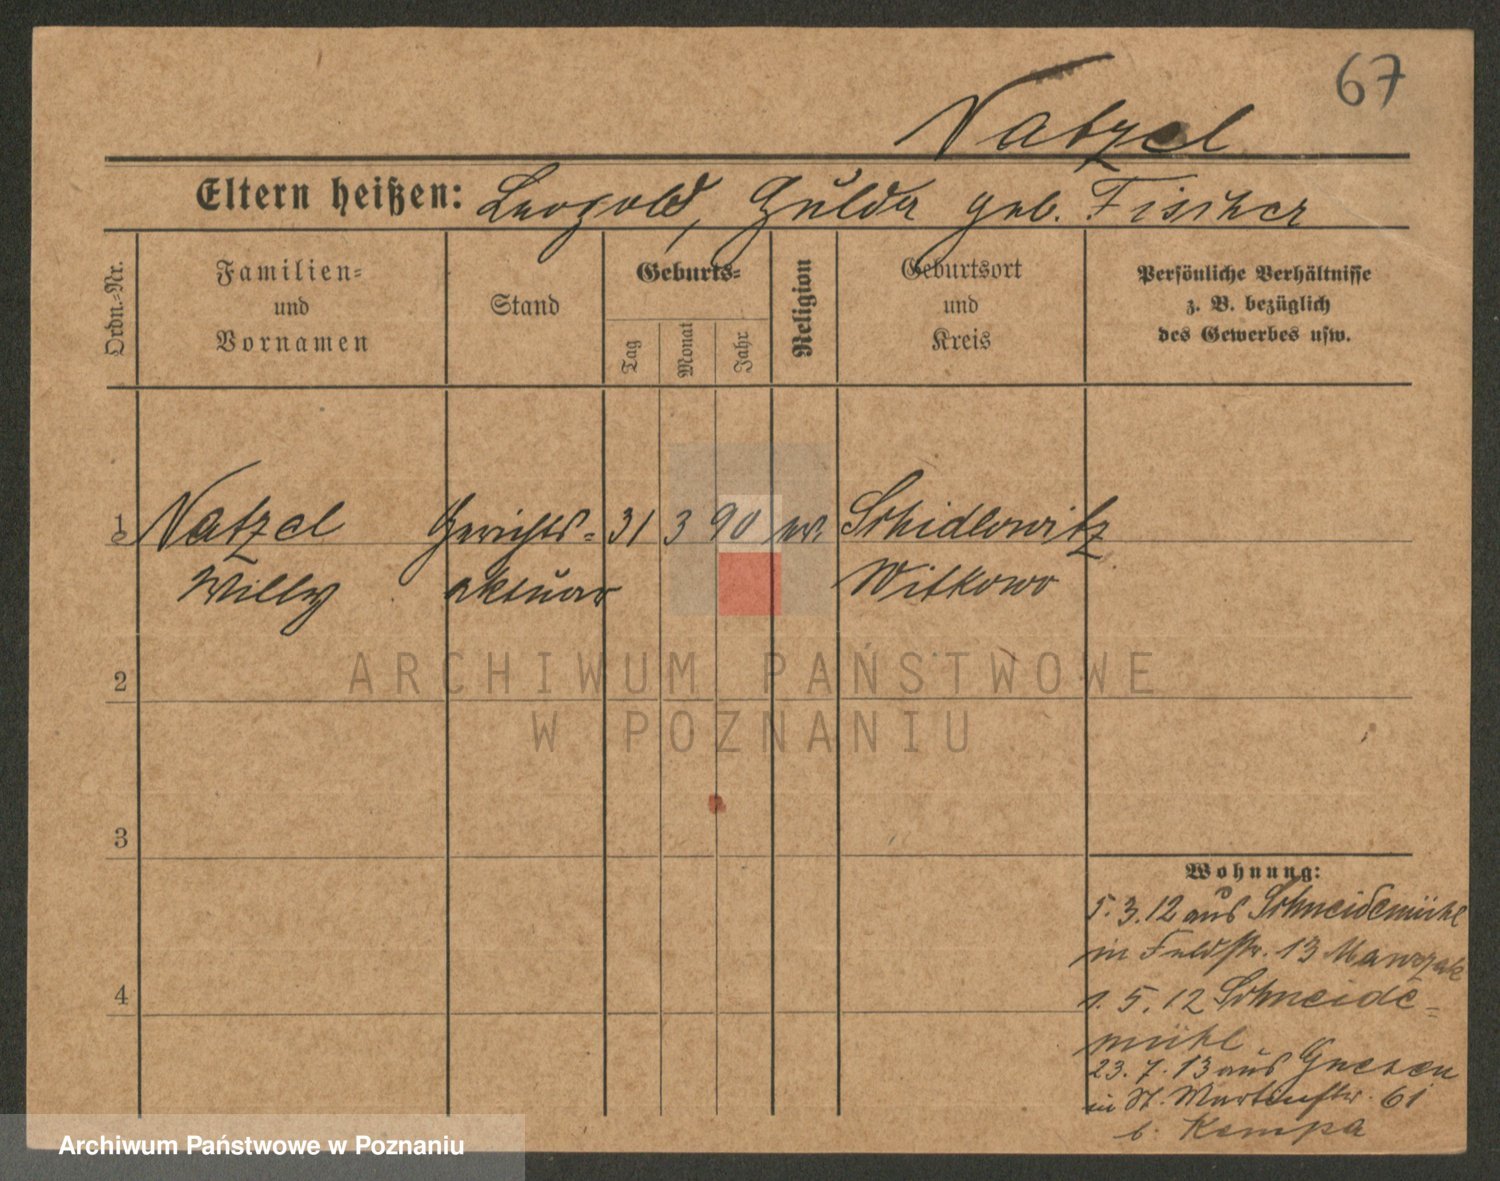 67
Natzel
Eltern heißen: Leopold, Hulda geb. Fischer
Ordn.-Nr.
Familien-
und
Vornamen
Stand
Geburts-
Tag
Monat
Jahr
Religion
Geburtsort
und
Kreis
Persönliche Verhältnisse
z. B. bezüglich
des Gewerbes usw.
1 Natzel Gerichts- 31 3 90 ev. Schidlowitz
Willy aktuar Witkowo
ARCHIWUM PAŃSTWOWE
2
W POZNANIU
3
Wohnung:
5.3.12 aus Schneidemühl
in Feldstr. 13 Mawrzak
4
1.5.12 Schneide-
mühl
23.7.13 aus Gnesen
in St. Martinstr. 61
b. Kempa
Archiwum Państwowe w Poznaniu